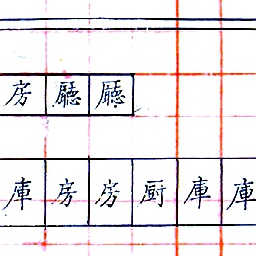 房廳廳
庫房房厨庫庫